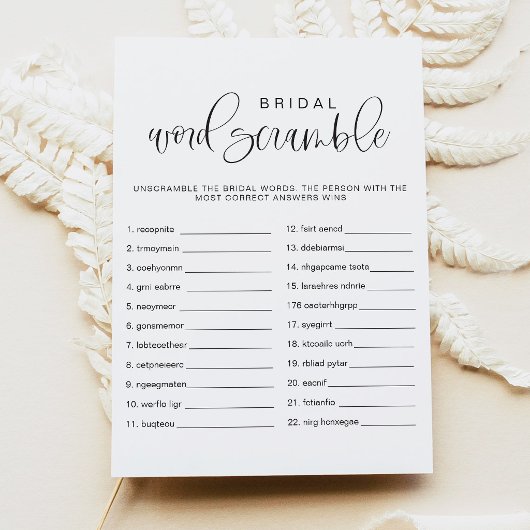 BRIDAL
word scramble
UNSCRAMBLE THE BRIDAL WORDS. THE PERSON WITH THE
MOST CORRECT ANSWERS WINS
1. recopnite
2. trmoymain
3. ooehyonmn
4. grni eabrre
5. neoymeor
6. gonsmemor
7. lobtecethear
8. cetpneieerc
9. ngeegmaten
10. werflo ligr
11. buqteou
12. fsirt aencd
13. ddebiarmsi
14. nhgapcame tsota
15. lsraehres ndnrie
176 oacterhhgrpp
17. syegirrt
18. ktcoailc uorh
19. rbliad pytar
20. eacnif
21. fctianfio
22. nirg honxegae